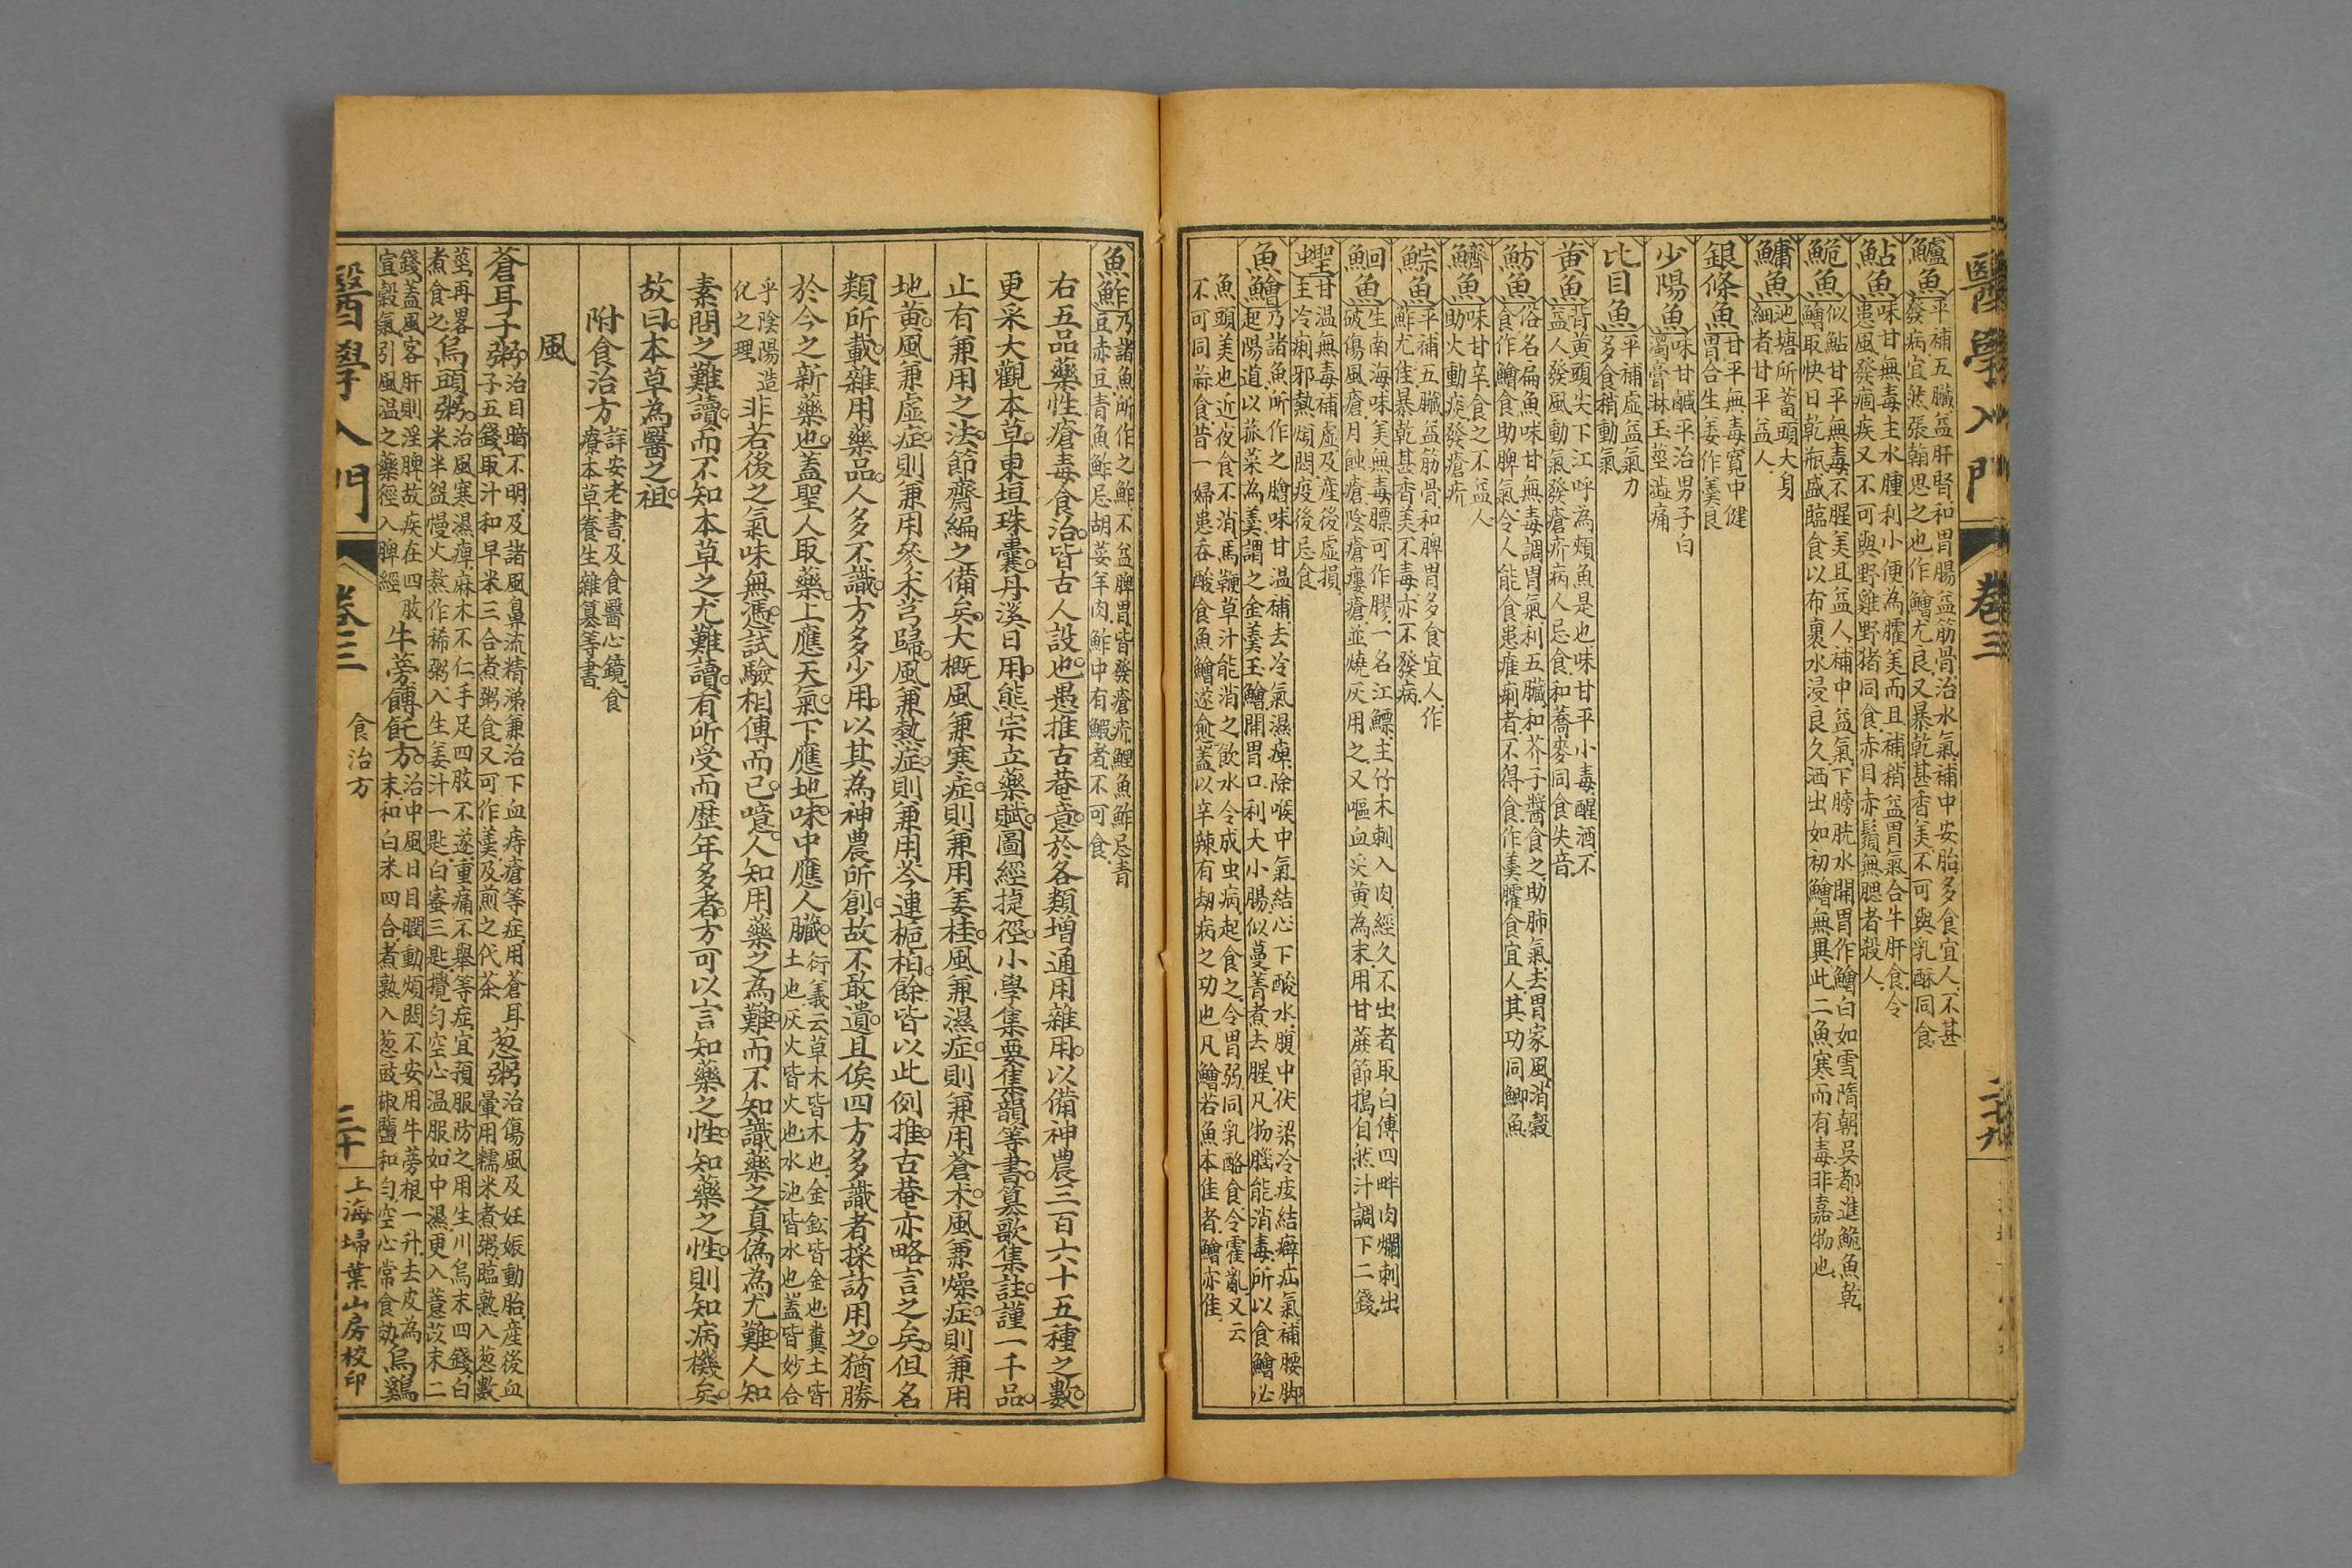 醫學入門 卷三 二十九
鱸魚 平補五臟益肝腎和胃腸益筋骨治水氣補中安胎多食宜人不甚
發病宜然張翰思之也作鱠尤良又暴乾甚香美不可與乳酥同食
鮎魚 味甘無毒主水腫利小便為臛美而且補稍益胃氣合牛肝食令
患風發痼疾又不可與野雞野猪同食赤目赤鬚無腮者殺人
鮠魚 似鮎甘平無毒不腥美且益人補中益氣下膀胱水開胃作鱠白如雪隋朝吳都進鮠魚乾
鱠取快日乾瓶盛臨食以布裹水浸良久洒出如初鱠無異此二魚寒而有毒非嘉物也
鱅魚 池塘所蓄頭大身
細者甘平益人
銀條魚 甘平無毒寬中健
胃合生姜作羹良
少陽魚 味甘鹹平治男子白
濁膏淋玉莖澁痛
比目魚 平補虛益氣力
多食稍動氣
黄魚 背黄頭尖下江呼為頰魚是也味甘平小毒醒酒不
益人發風動氣發瘡疥病人忌食和蕎麥同食失音
魴魚 俗名扁魚味甘無毒調胃氣利五臟和芥子醬食之助肺氣去胃家風消穀
食作鱠食助脾氣令人能食患疳痢者不得食作羹臛食宜人其功同鯽魚
鱭魚 味甘辛食之不益人
助火動痰發瘡疥
鯮魚 平補五臟益筋骨和脾胃多食宜人作
鮓尤佳暴乾甚香美不毒亦不發病
鮰魚 生南海味美無毒膘可作膠一名江鰾主竹木刺入肉經久不出者取白傅四畔肉爛刺出
破傷風瘡月蝕瘡陰瘡瘻瘡並燒灰用之又嘔血炎黄為末用甘蔗節搗自然汁調下二錢
蟶 甘温無毒補虛及産後虛損
主冷痢邪熱煩悶疫後忌食
魚鱠 乃諸魚所作之膾味甘温補去冷氣濕痺除喉中氣結心下酸水腹中伏梁冷痃結癖疝氣補腰脚
起陽道以菰菜為羹謂之金羹玉鱠開胃口利大小腸似蔓菁煮去腥凡物腦能消毒所以食鱠必
魚頭羹也近夜食不消馬鞭草汁能消之飲水令成虫病起食之令胃弱同乳酪食令霍亂又云
不可同蒜食昔一婦患吞酸食魚鱠遂愈蓋以辛辣有劫病之功也凡鱠若魚本佳者鱠亦佳
魚鮓 乃諸魚所作之鮓不益脾胃皆發瘡疥鯉魚鮓忌青
豆赤豆青魚鮓忌胡荽羊肉鮓中有蝦者不可食
右五品藥性瘡毒食治皆古人設也愚推古菴意於各類增通用雜用以備神農三百六十五種之數
更采大觀本草東垣珠囊丹溪日用熊宗立藥賦圖經捷徑小學集要集韻等書篡歌集註謹一千品
止有兼用之法節齋編之備矣大概風兼寒症則兼用姜桂風兼濕症則兼用蒼术風兼燥症則兼用
地黄風兼虛症則兼用參术芎歸風兼熱症則兼用岑連梔柏餘皆以此例推古菴亦略言之矣但名
類所載雜用藥品人多不識方多少用以其為神農所創故不敢遺且俟四方多識者採訪用之猶勝
於今之新藥也蓋聖人取藥上應天氣下應地味中應人臟 衍義云草木皆木也金鈆皆金也糞土皆
土也灰火皆火也水池皆水也蓋皆妙合
乎陰陽造
化之理 非若後之氣味無憑試驗相傳而已噫人知用藥之為難而不知識藥之真偽為尤難人知
素問之難讀而不知本草之尤難讀有所受而歷年多者方可以言知藥之性知藥之性則知病機矣
故曰本草為醫之祖
附食治方 詳安老書及食醫心鏡食
療本草養生雜纂等書
風
蒼耳子粥 治目暗不明及諸風鼻流精涕兼治下血痔瘡等症用蒼耳
子五錢取汁和早米三合煮粥食又可作羹及煎之代茶 葱粥 治傷風及妊娠動胎産後血
暈用糯米煮粥臨熟入葱數
莖再畧
煮食之 烏頭粥 治風寒濕痺麻木不仁手足四肢不遂重痛不舉等症宜預服防之用生川烏末四錢白
米半盌慢火熬作稀粥入生姜汁一匙白蜜三匙攪匀空心温服如中濕更入薏苡末二
錢蓋風客肝則淫脾故疾在四肢
宣穀氣引風温之藥徑入脾經 牛蒡餺飥方 治中風日目瞤動煩悶不安用牛蒡根一升去皮為
末和白米四合煮熟入葱豉椒鹽和匀空心常食効 烏鷄
醫學入門 卷三 食治方 三十 上海埽葉山房校印